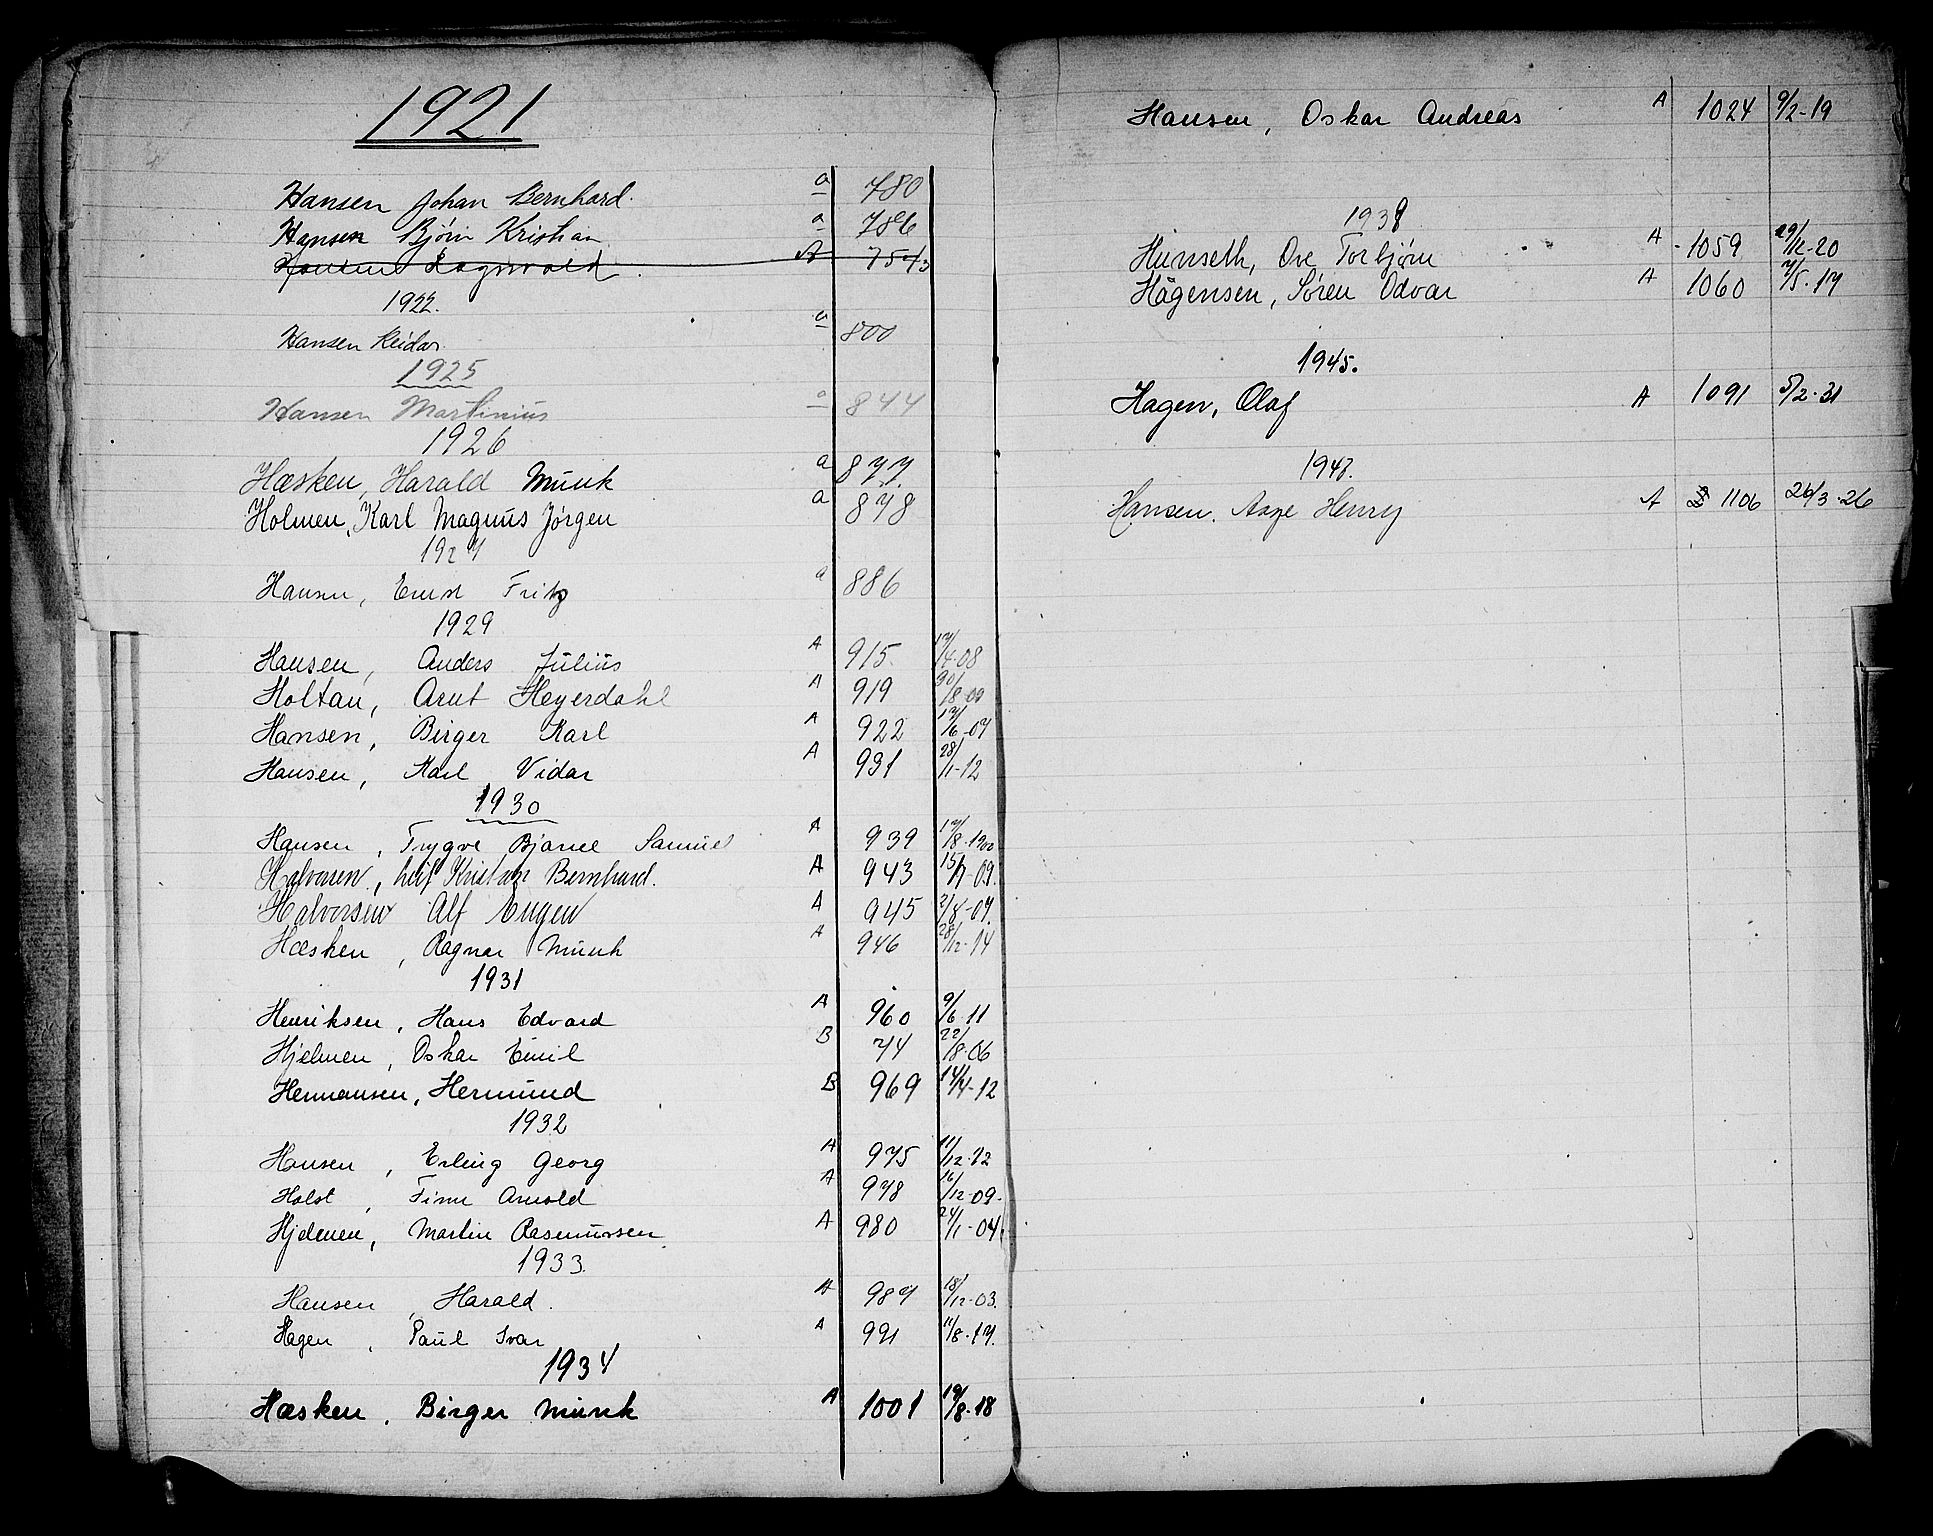 1921
Hansen Johan Bernhard. a 780
Hansen Bjørn Kristian a 786
Hansen Ragnvald. A 754/3
1922.
Hansen Reidar a 800
1925
Hansen Martinius a 844
1926
Hæsken, Harald Munk a 877.
Holmen, Karl Magnus Jørgen a 878
1927
Hansen, Ernst Fritz a 886
1929
Hansen, Anders Julius A 915. 17/4-08
Holtan, Arnt Heyerdahl A 919 30/8-09
Hansen, Birger Karl A 922 17/6-07
Hansen, Karl Vidar A 931 28/11-12
1930
Hansen, Trygve Bjarne Samuel A 939 17/8-1900
Halvorsen, Leif Kristian Bernhard. A 943 15/7-09.
Halvorsen Alf Eugen A 945 2/8-07.
Hæsken, Ragnar Munk A 946 28/12-14
1931
Henriksen, Hans Edvard A 960 9/6-11
Hjelmen, Oskar Emil B 74 22/8-06
Hermansen, Hermund B 969 14/4-12
1932
Hansen, Erling Georg A 975 11/12-12
Holst, Finn Arnold A 978 16/12-09.
Hjelmen, Martin Rasmussen A 980 24/1-04.
1933.
Hansen, Harald. A 987 18/12-03.
Hagen, Paul Ivar A 991 11/8-17.
1934
Hæsken, Birger Munk A 1001 19/8-18
Hansen, Oskar Andreas A 1024 9/2-19
1938
Hunseth, Ove Torbjørn A 1059 29/12-20
Hågensen, Søren Odvar A 1060 7/5-17
1945.
Hagen, Olaf A 1091 5/2-31
1947.
Hansen. Aage Henry A 1106 26/3-26